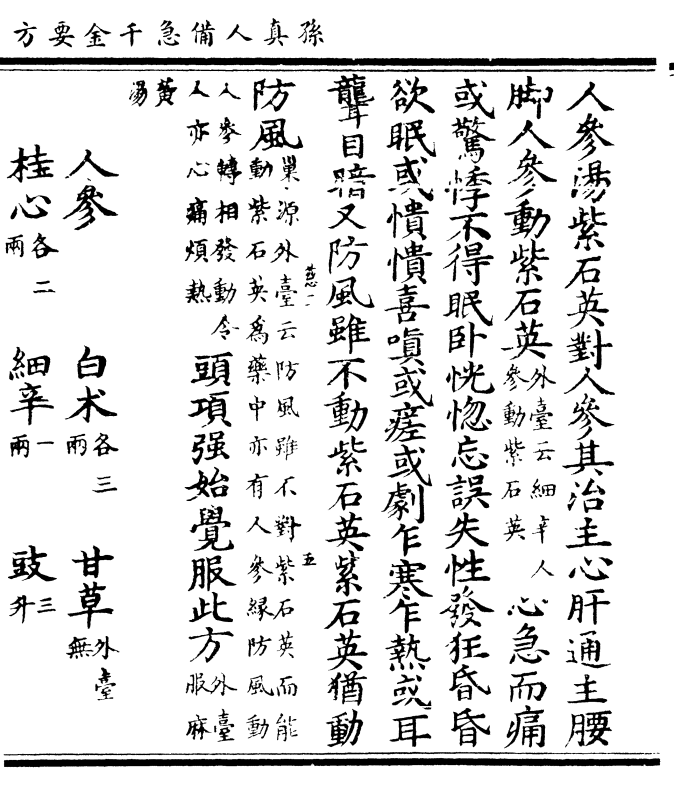 孫真人備急千金要方
人參湯紫石英對人參其治主心肝通主腰
脚人參動紫石英外臺云細辛人參動紫石英心急而痛
或驚悸不得眠卧恍惚忘誤失性發狂昏昏
欲眠或憒憒喜嗔或瘥或劇乍寒乍熱或耳
聾目暗又防風雖不動紫石英紫石英猶動
防風巢源外臺云防風雖不對紫石英而能動紫石英爲藥中亦有人參緣防風動
人參轉相發動令人亦心痛煩熱頭項强始覺服此方外臺服麻
黃湯
人參 白术各三兩 甘草外臺無
桂心各二兩 細辛一兩 豉三升